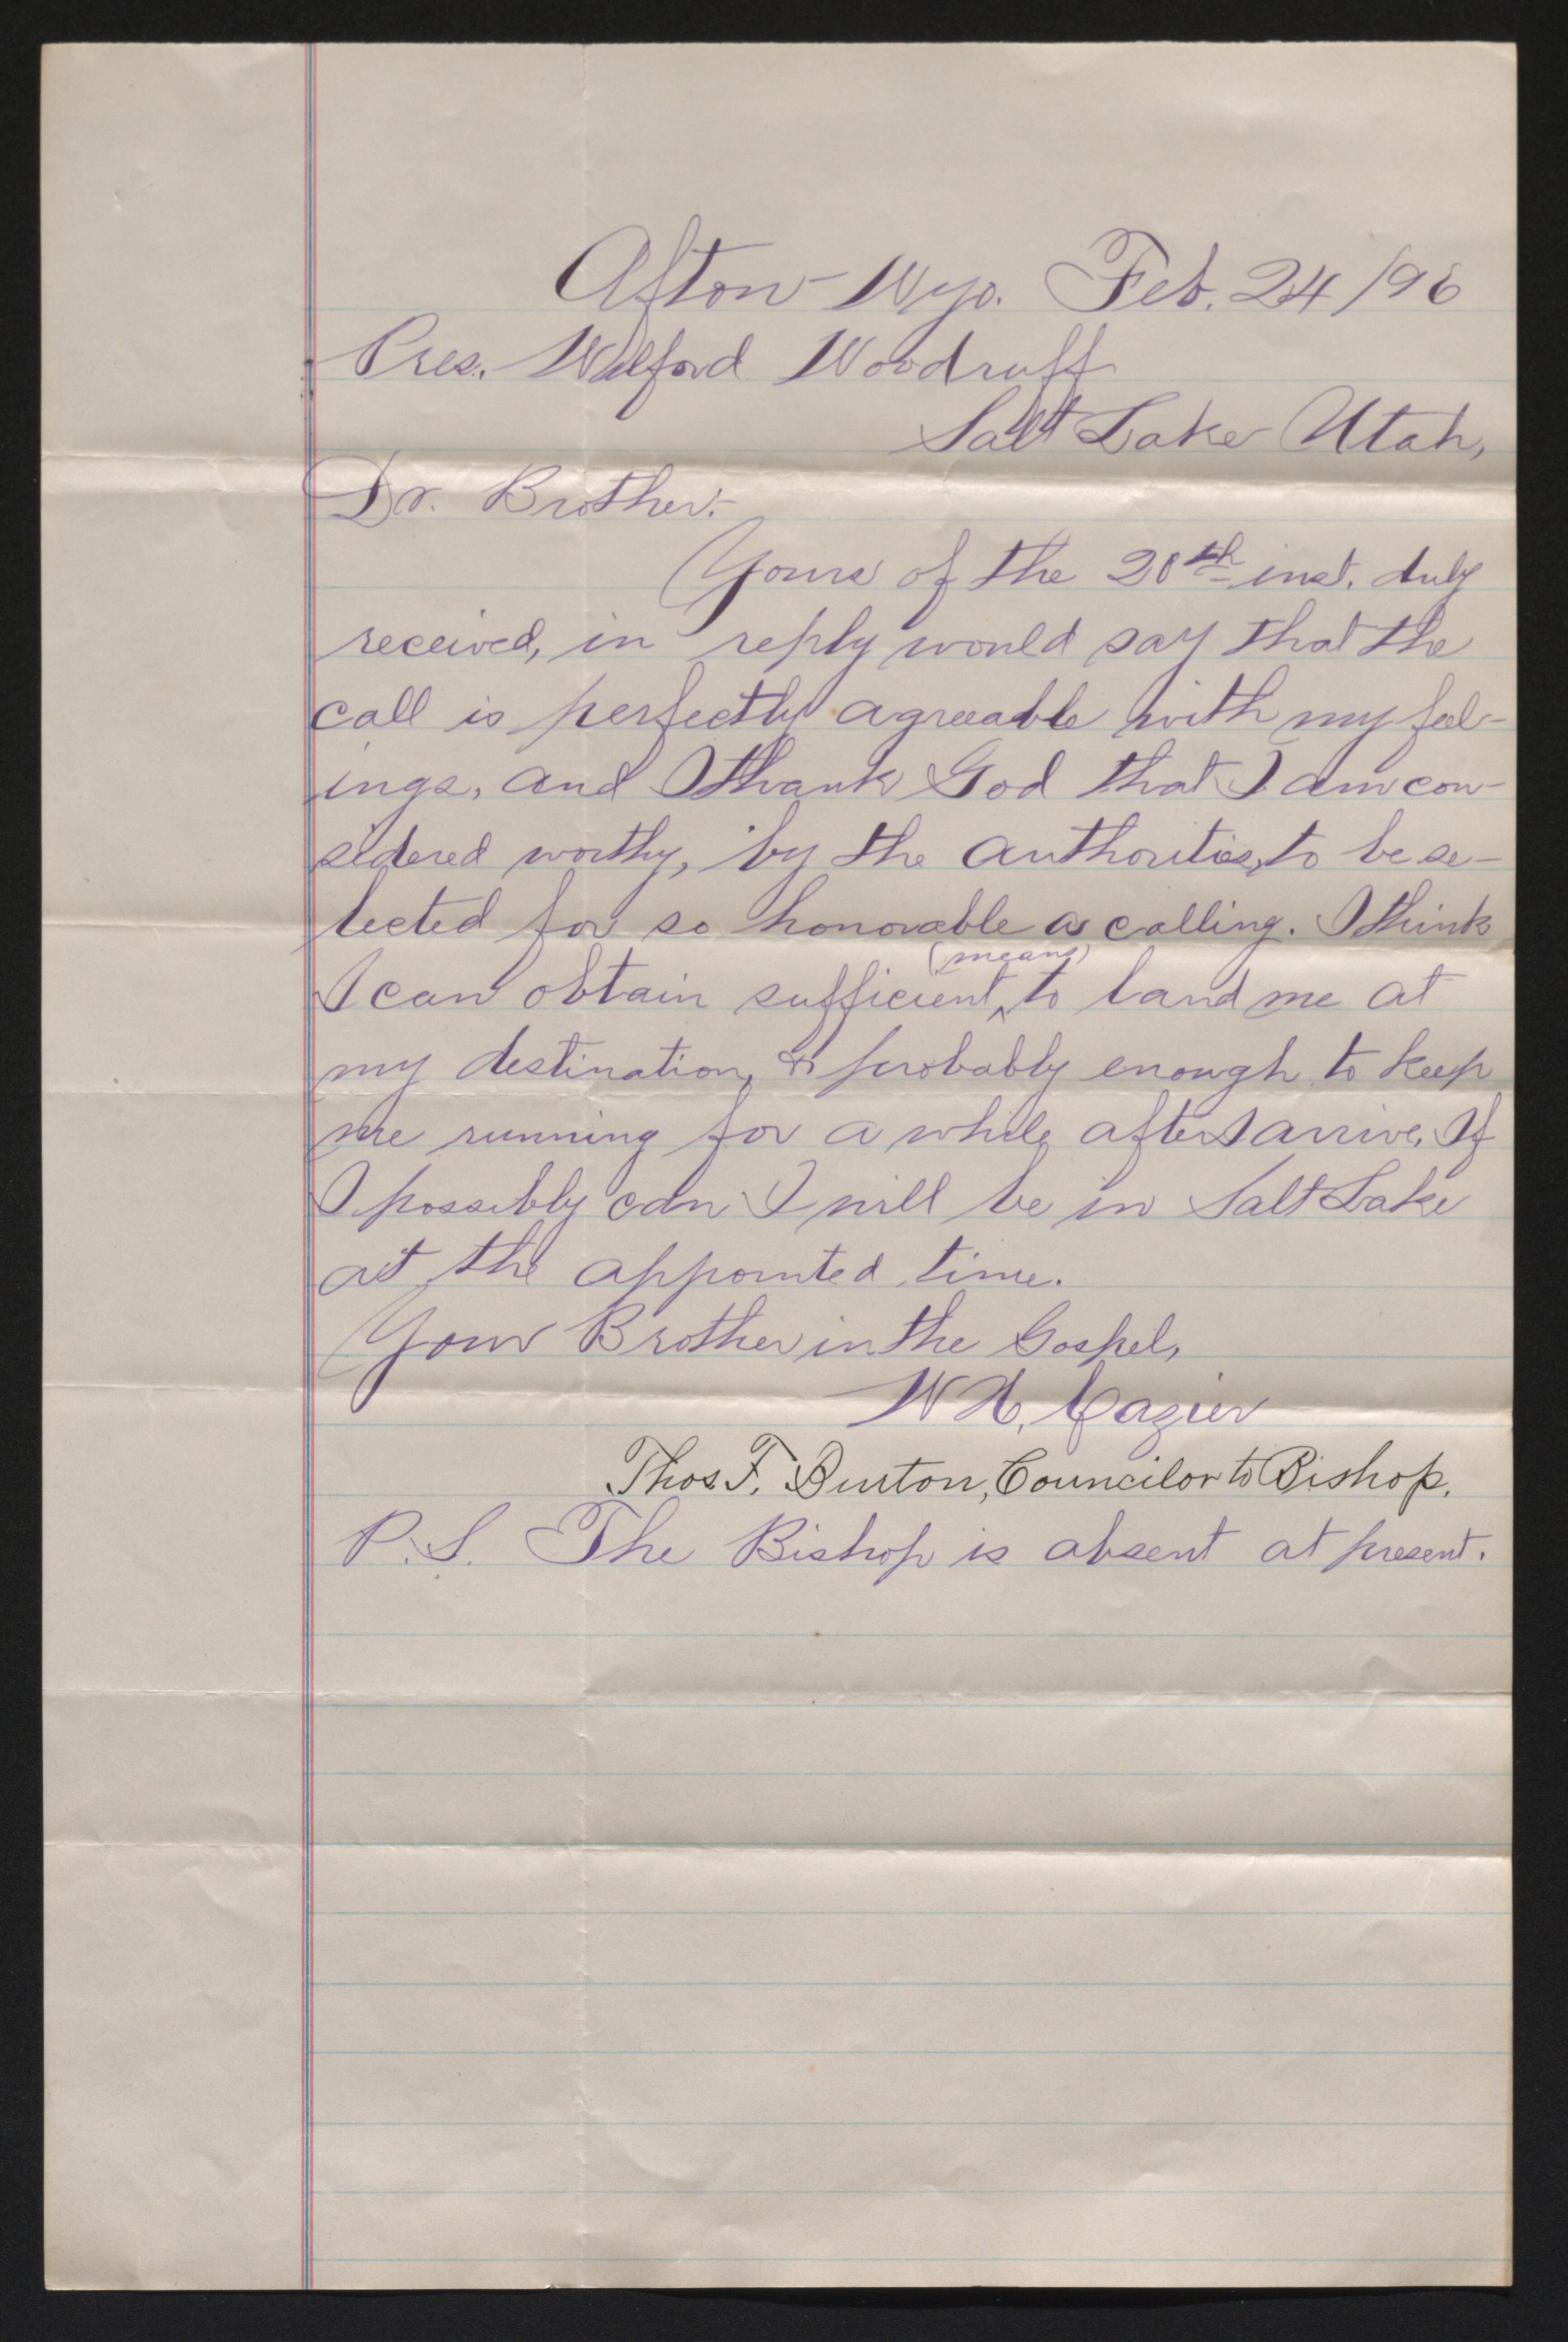 Afton Wyo. Feb. 24/96
Pres. Wilford Woodruff
Salt Lake Utah,
Dr. Brother:-
Yours of the 20th inst. duly
received, in reply would say that the
call is perfectly agreeable with my feel-
ings, and I thank God that I am con-
sidered worthy, by the authorities, to be se-
lected for so honorable a calling. I think
(means)
I can obtain sufficient, ^ to land me at
my destination, & probably enough to keep
me running for a while after I arrive, If
I possibly can I will be in Salt Lake
at the appointed time.
Your Brother in the Gospel,
W H. Cazier
Thos. F. Burton, Councilor to Bishop.
P.S. The Bishop is absent at present.